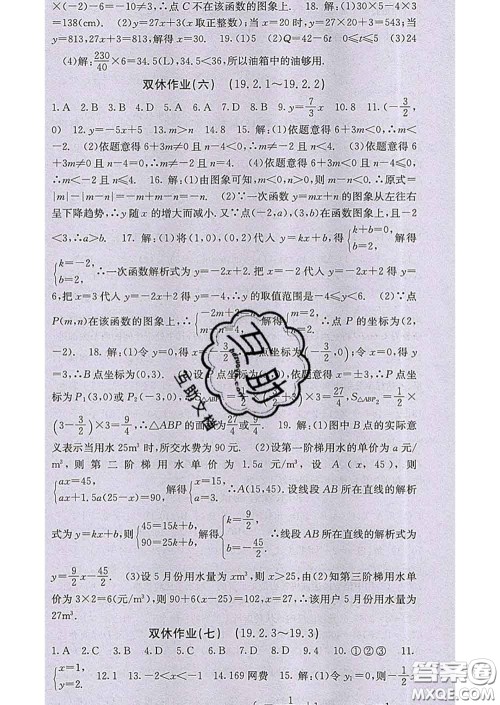 ×(-2)-6=-3+6=3,∴点C不在该函数的图象上. 18. 解:(1)30×5-4×3
=138. (2)y=27x+3(x取正整数);当x=20时,y=27×20+3=543;当
y=813,27x+3=813,解得x=30. 19.(1)5 (2)Q=42-6t 0≤t≤5 (3)24
(4)解:230/40×6=34.5(L),34.5<36,所以油箱中的油够用.
双休作业(六) (19.2.1~19.2.2)
1. A 2. B 3. D 4. A 5. D 6. B 7. B 8. B 9. y=7/3x 10. 8 11. (-3/2,
0) 12. y=-5x+5 13. m>n 14. 8 15. 解:(1)依题意得6+3m<0,∴m<
-2. (2)依题意得6+3m≠0且n-4<0,∴m≠-2且n<4. (3)依题意得6
+3m≠0且n-4=0,∴m≠-2且n=4. (4)依题意得6+3m<0且n-4≤0,
∴m<-2且n≤4. 16. 解:(1)由图象可知,m<0,n>0,∴m-n<0,∴原式=
|m|-|m-n|=-m+m-n=-n. (2)∵一次函数y=mx+n的图象从左往右
呈下降趋势,∴y随x的增大而减小.又∵点(-2,a),(3,b)在函数图象上,且-2
<3,∴a>b. 17. 解:(1)将(1,0),(0,2)代入y=kx+b,得{k+b=0, b=2, 解得
{k=-2, b=2, ∴一次函数解析式为y=-2x+2.把x=-2代入y=-2x+2得y=
6,把x=3代入y=-2x+2得y=-4,∴y的取值范围是-4≤y<6. (2)∵点
P(m,n)在该函数的图象上,∴{-2m+2 ∴点P的坐标为(2,
-2). 18. 解:(1)令y=0,得x=-3/2,∴A点坐标为(-3/2,0);令x=0,得
y=3,∴B点坐标为 (2)设P点坐标为(x,0),依题意得x=±3,∴P点坐标
为P₁(3,0)或P₂(-3,0), ×3=27/4,S△ABP₂=1/2×
(3-3/2)×3=9/4,∴△ABP的面积为27/4或9/4. 19. 解:(1)图中B点的实际意
义表示当用水25m³时,所交水费为90元. (2)设第一阶梯用水的单价为a元/
m³,则第二阶梯用水单价为1.5a元/m³,设A(x,45),则
{ax=45, ax+1.5a(25-x)=90, 解得{ x=15, ∴A(15,45).设线段AB所在直线的解析
式为y=kx+b,则{45=15k+b, 90=25k+b, 解得{k=9/2, b=-45/2. ∴线段AB所在直线的解析式为
y=9/2x-45/2. (3)设5月份用水量为xm³,则x>25,由(2)知第三阶梯用水单
价为3×2=6(元/m³),则90+6(x-25)=102,解得x=27,∴该用户5月份用水量为
27m³.
双休作业(七) (19.2.3~19.3)
1. A 2. C 3. C 4. A 5. B 6. A 7. D 8. D 9. B 10. ①②③ 11.
{x=1, y=2. 12. 1 13. -2<x<-1 14. 169 网费 15. 解:(1)令y₁=0,则-1/2
互助
互助文档
答案圈
MXQE.COM